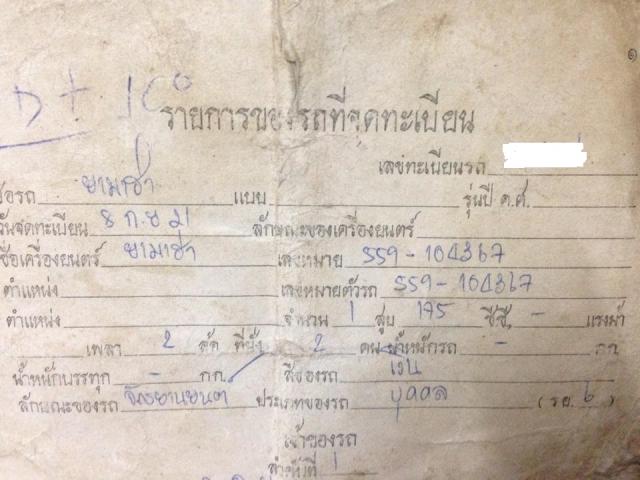 ๑
D + 10
รายการของรถที่จดทะเบียน
เลขทะเบียนรถ
ชื่อรถ ยามาฮ่า แบบ รุ่นปี ค.ศ.
วันจดทะเบียน 8 ก.ย ลักษณะของเครื่องยนตร์
ชื่อเครื่องยนตร์ ยามาฮ่า เลขหมาย 559-104367
ตำแหน่ง เลขหมายตัวรถ 559-104367
ตำแหน่ง จำนวน 1 สูบ 175 ซีซี, - แรงม้า
เพลา 2 ล้อ ที่นั่ง 2 คน น้ำหนักรถ - กก.
น้ำหนักบรรทุก - กก. สีของรถ เงิน
ลักษณะของรถ จักรยานยนต์ ประเภทของรถ บุคคล (รย. 6)
เจ้าของรถ
ลำดับที่ 1